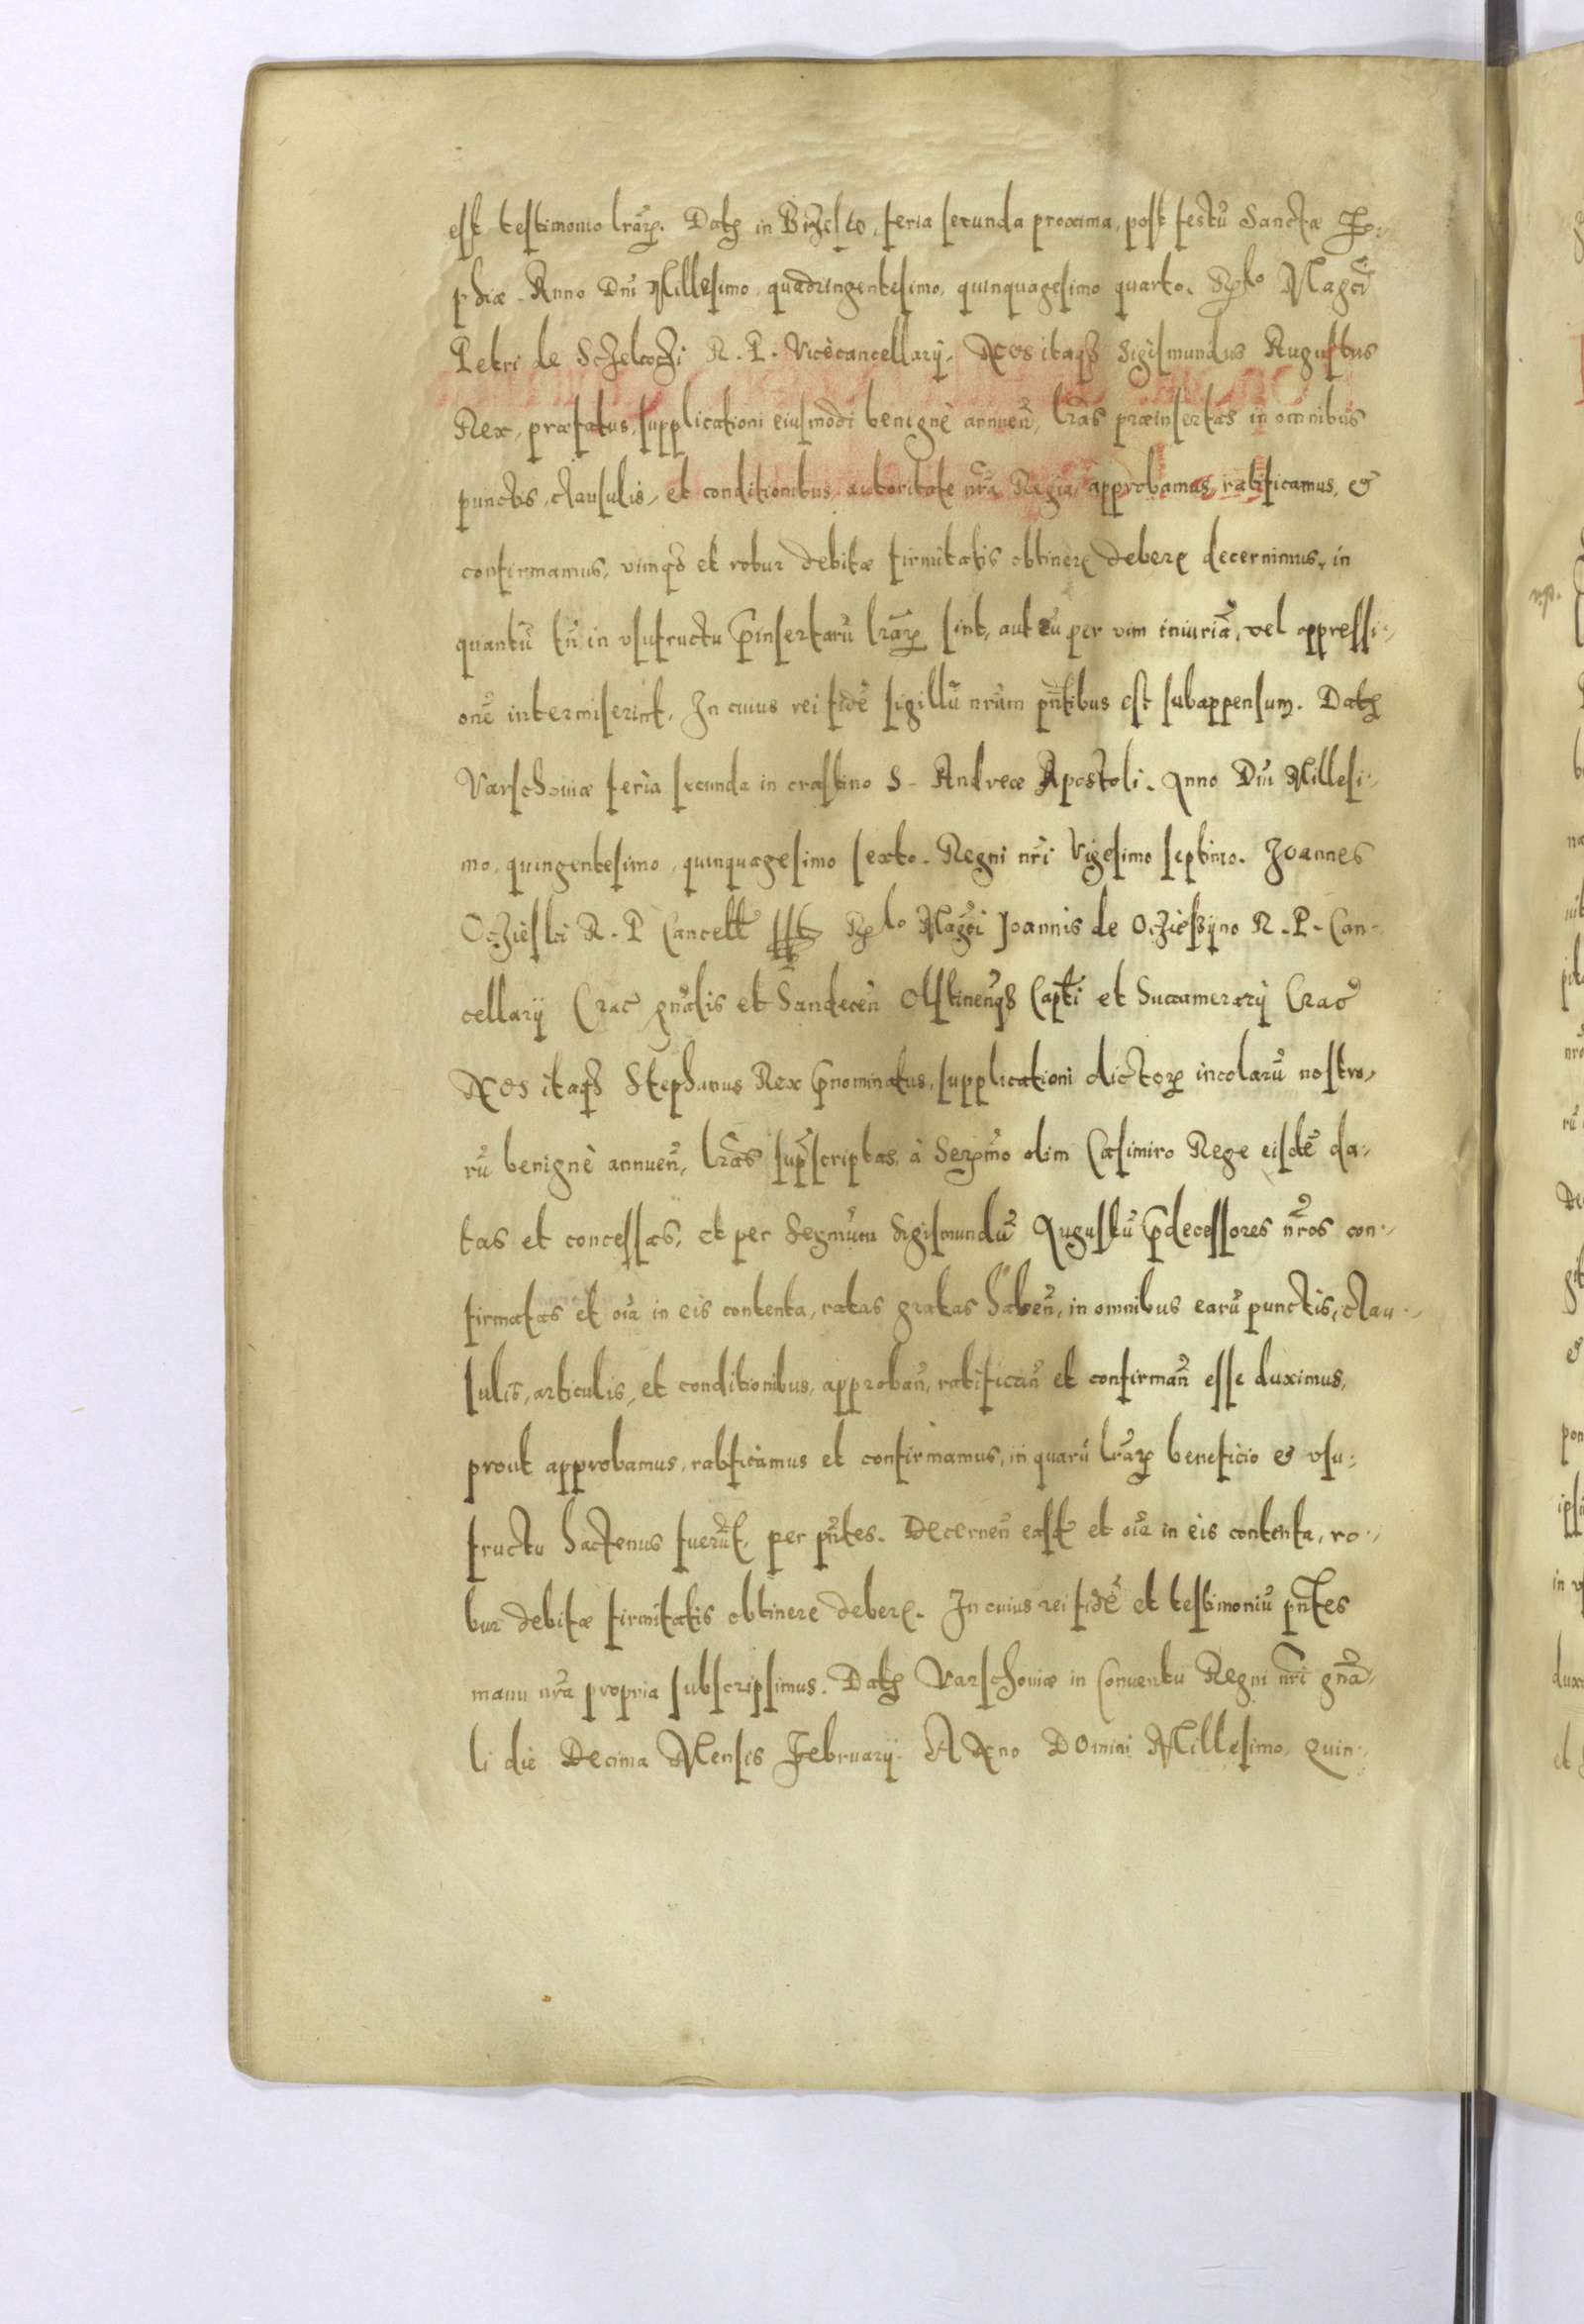 est testimonio lrãꝝ. Datꝫ in Brzescio, feria secunda proxima, post festũ Sanctæ So-
phiæ. Anno Dnĩ Millesimo, quadringentesimo, quinquagesimo quarto. Rͣelo Magcĩ
Petri de Sczekoczi R. P. Vicècancellarÿ. Nos itaqꝫ Sigismundus Augustus
Rex, præfatus, supplicationi eiusmodi benignè annueñ, lrãs præinsertas in omnibus
punctis, clausulis, et conditionibus, autoritate nrã Regia, approbamus, ratificamus, &
confirmamus, vimqꝫ et robur debitæ firmitatis obtinere debere decernimus, in
quantũ tñ in vsufructu p̃insertarũ lrãꝝ sint, aut eũ per vim iniuriã, vel oppressi-
onẽ intermiserint. In cuius rei fidẽ sigillũ nrũm pñtibus est subappensum. Datꝫ
Varschouiæ feria secunda in crastino S. Andreæ Apostoli. Anno Dnĩ Millesi-
mo, quingentesimo, quinquagesimo sexto. Regni nrĩ Vigesimo septimo. Joannes
Oczieski R. P. Cancellꝰ sst Rͣelo Magcĩ Joannis de Oczieszÿno R. P. Can-
cellarÿ Crac̃ gnãlis et Sandeceñ Olstineñqꝫ Capti et Succamerarÿ Crac̃
Nos itaqꝫ Stephanus Rex p̃nominatus, supplicationi dictoꝝ incolarũ nostro-
rũ benignè annueñ, lrãs sup̃scriptas, à Serm̃o olim Casimiro Rege eisdẽ da-
tas et concessas, et per Serm̃um Sigismundũ Augustũ p̃decessores nrõs con-
firmatas et oĩa in eis contenta, ratas gratas habeñ, in omnibus earũ punctis, clau-
sulis, articulis, et conditionibus, approbañ, ratificañ et confirmañ esse duximus,
prout approbamus, ratificamus et confirmamus, in quarũ lrãꝝ beneficio & vsu-
fructu hactenus fuerũt, per pñtes. Decerneñ easdẽ et oĩa in eis contenta, ro-
bur debitæ firmitatis obtinere debere. In cuius rei fidẽ et testimoniũ pñtes
manu nrã propria subscripsimus. Datꝫ Varschouiæ in Conuentu Regni nrĩ gnã-
li die Decima Mensis Februarÿ. Anno Domini Millesimo, quin-